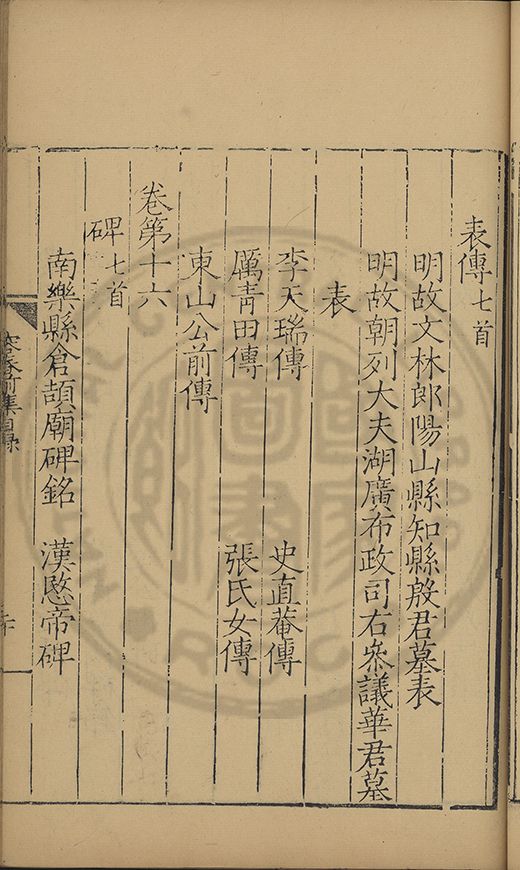 表傳七首
明故文林郎陽山縣知縣殷君墓表
明故朝列大夫湖廣布政司右叅議華君墓
表
李天瑞傳　史直菴傳
厲青田傳　張氏女傳
東山公前傳
卷第十六
碑七首
南樂縣倉頡廟碑銘　漢愍帝碑